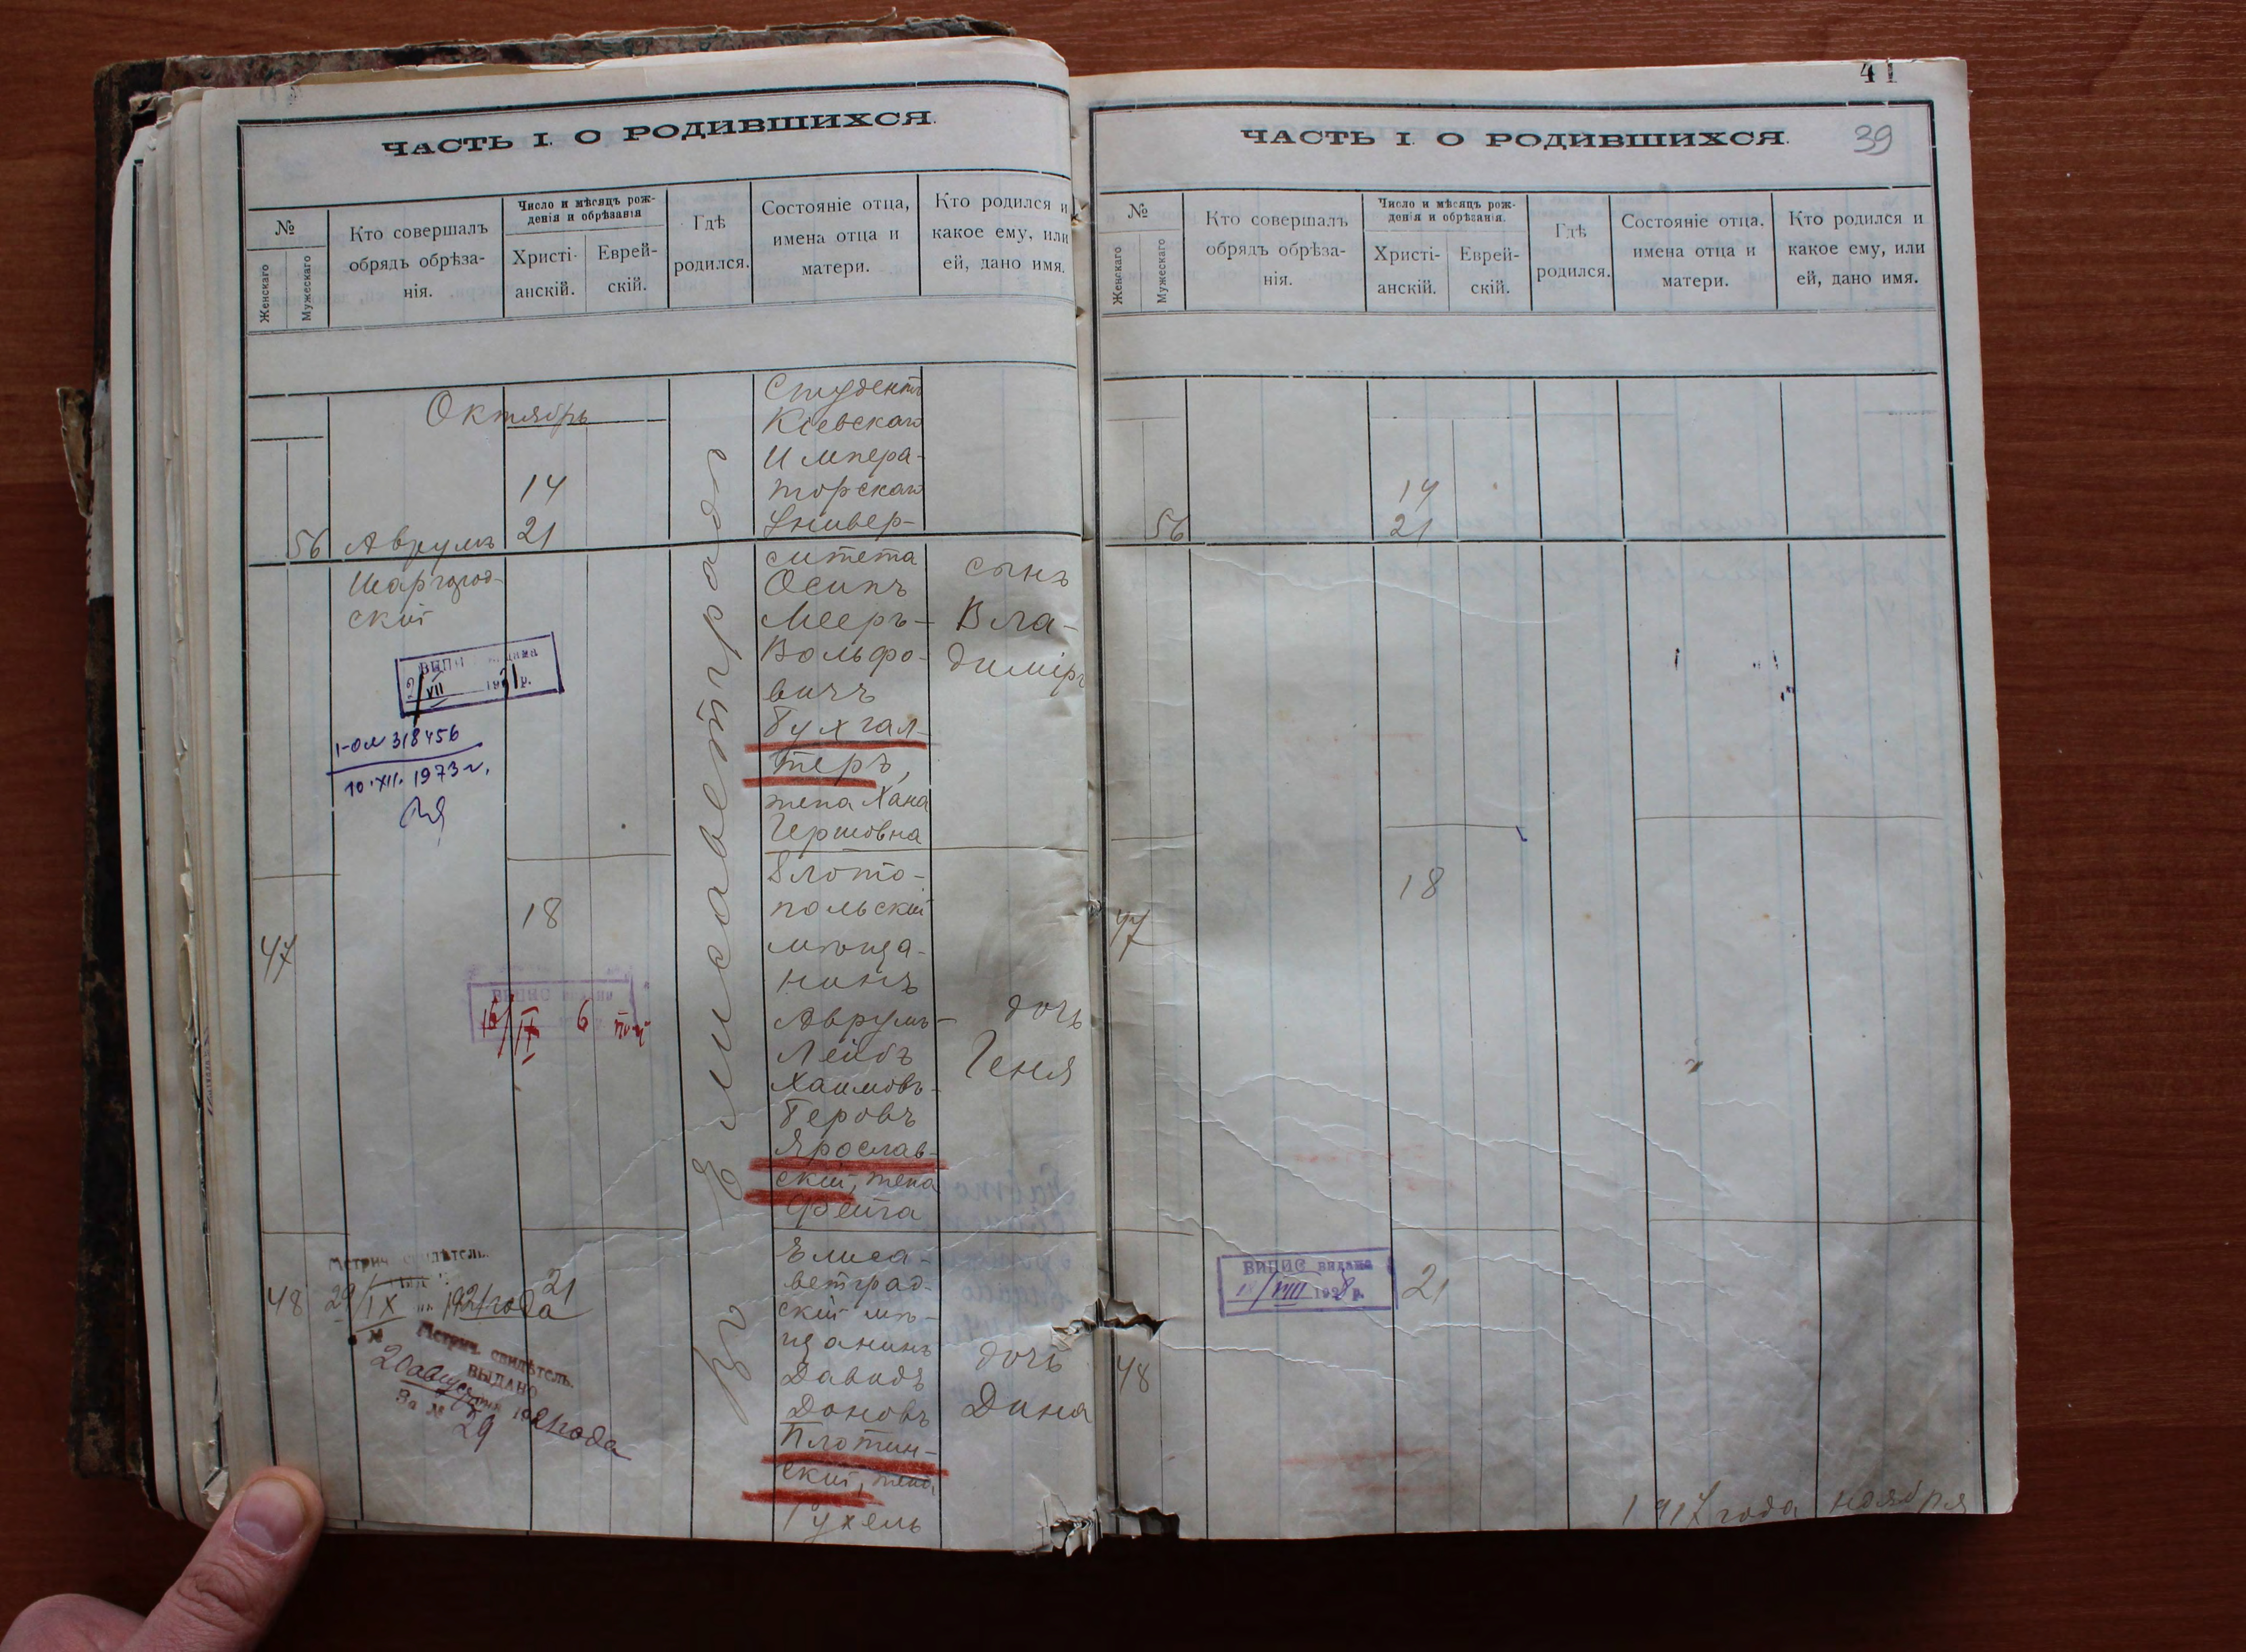 ЧАСТЬ I. О РОДИВШИХСЯ.
№
Женскаго
Мужескаго
Кто совершалъ
обрядъ обрѣза-
нія.
Число и мѣсяцъ рож-
денія и обрѣзанія
Христі-
анскій.
Еврей-
скій.
Гдѣ
родился.
Состояніе отца,
имена отца и
матери.
Кто родился и
какое ему, или
ей, дано имя.
Октябрь
56
Аврумъ
Шаргород-
скій
14
21
Въ Елисаветградѣ
Студентъ
Кіевскаго
Импера-
торскаго
Универ-
ситета
Осипъ
Мееръ-
Вольфо-
вичъ
Бухгал-
теръ,
жена Хана
Гершовна
сынъ
Вла-
диміръ
ВИПИ видана
2/VII 1921 р.
1-ОЛ 318456
10.XII.1973 г.
47
18
Злото-
польскій
мѣща-
нинъ
Аврумъ-
Лейбъ
Хаимовъ-
Беровъ
Ярослав-
скій, жена
Фейга
дочь
Геня
16/IX 6
48
21
Елиса-
ветград-
скій мѣ-
щанинъ
Давидъ
Доновъ
Плотин-
скій, жена
Рухель
дочь
Дина
Метрич. свидѣтель.
29/IX 1921 года
№
Метрич. свидѣтель.
ВЫДАНО
20 августа 1921 года
За № 29
41
39
ЧАСТЬ I. О РОДИВШИХСЯ.
№
Женскаго
Мужескаго
Кто совершалъ
обрядъ обрѣза-
нія.
Число и мѣсяцъ рож-
денія и обрѣзанія.
Христі-
анскій.
Еврей-
скій.
Гдѣ
родился.
Состояніе отца.
имена отца и
матери.
Кто родился и
какое ему, или
ей, дано имя.
14
56
21
18
47
ВИПИС видана
VIII 1928 р.
21
48
1917 года ноября